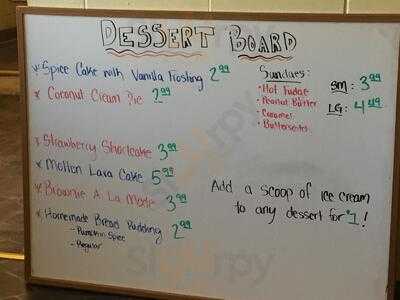 DESSERT BOARD
* Spice Cake with Vanilla Frosting 2.99
* Coconut Cream Pie 2.99
* Strawberry Shortcake 3.99
* Molten Lava Cake 5.99
* Brownie A La Mode 3.99
* Homemade Bread Pudding 2.99
- Pumpkin Spice
- Regular
Sundaes:
• Hot Fudge
• Peanut Butter
• Caramel
• Butterscotch
SM: 3.99
LG: 4.49
Add a scoop of ice cream
to any dessert for $1!